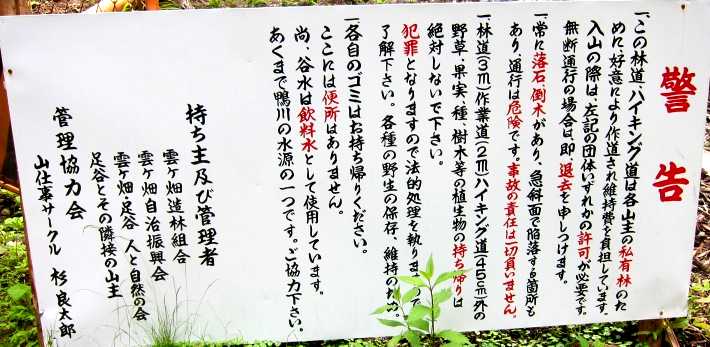 警告
一、この林道、ハイキング道は各山主の私有林のた
めに、好意により作道され維持費を負担しています。
入山の際は、左記の団体いずれかの許可が必要です。
無断通行の場合は、即、退去を申しつけます。
一、常に落石、倒木があり、急斜面で陥落する箇所も
あり、通行は危険です。事故の責任は一切負いません。
一、林道(3m)作業道(2m)ハイキング道(45cm)外の
野草・果実、種、樹木等の植生物の持ち帰りは
絶対しないで下さい。
犯罪となりますので法的処理を執りま
了解下さい。各種の野生の保存、維持のため。
一、各自のゴミはお持ち帰りください。
ここには便所はありません。
尚、谷水は飲料水として使用しています。
あくまで鴨川の水源の一つです。ご協力下さい。
持ち主及び管理者
雲ケ畑造林組合
雲ケ畑自治振興会
雲ケ畑・足谷 人と自然の会
足谷とその隣接の山主
管理協力会
山仕事サークル 杉良太郎